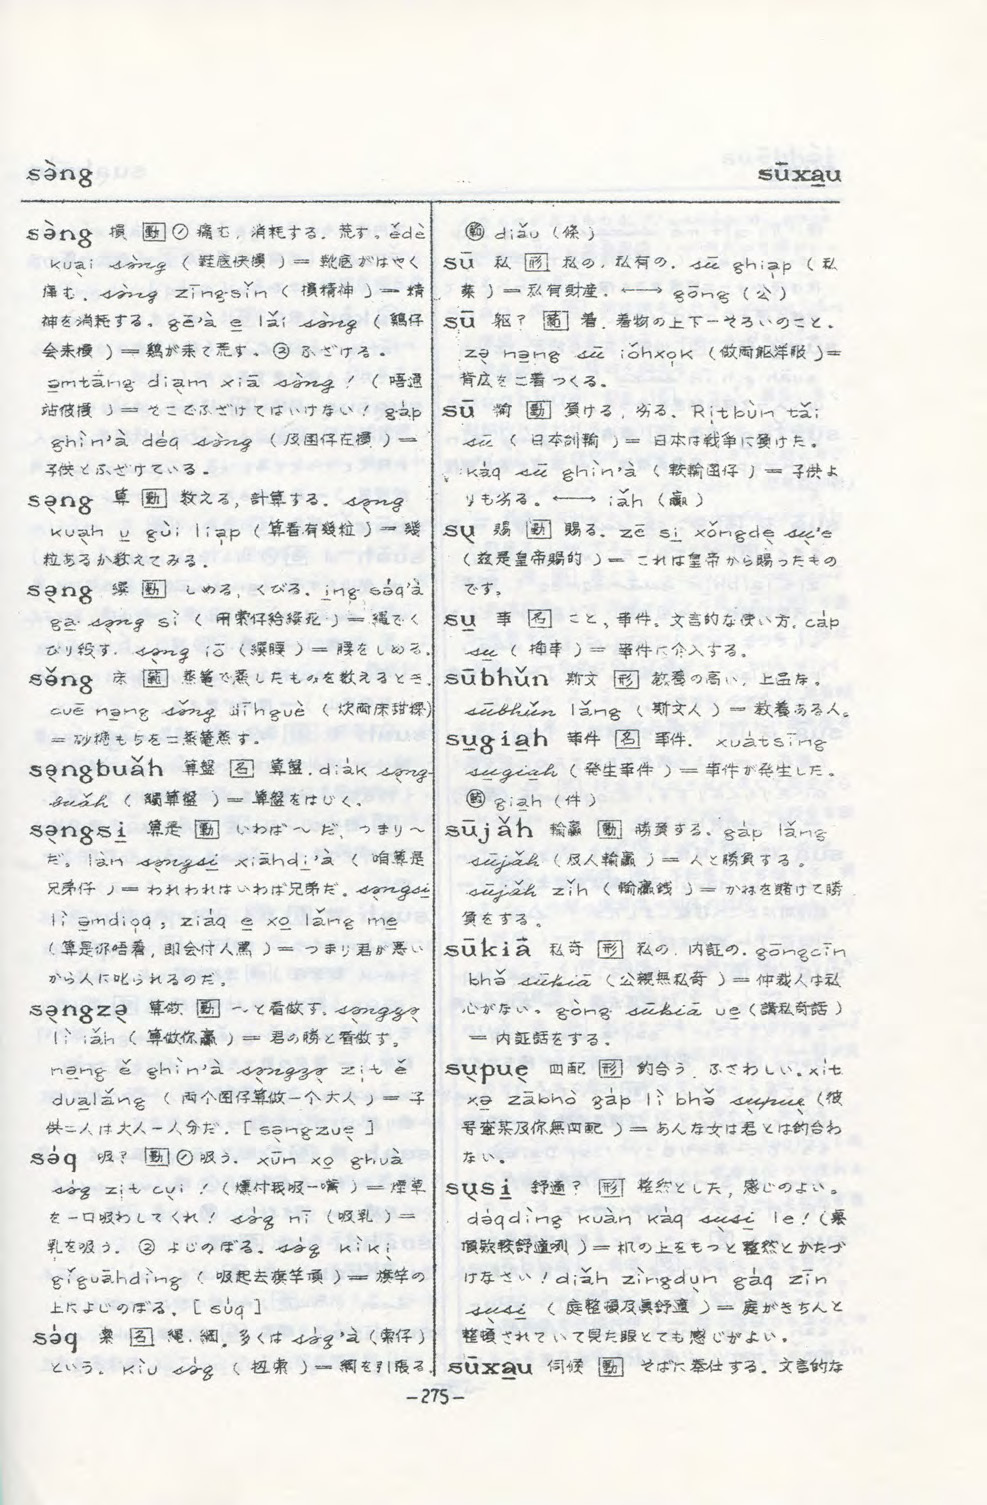 sə̀ng
sūxa̱u
sə̀ng 損 [動] ① 痛む, 消耗する. 荒す。ědè
kuại sə̀ng (鞋底快損) ＝ 靴底がはやく
痛む. sə̀ng zīng-sǐn (損精神) ＝ 精
神を消耗する。gē'à e̱ lǎi sə̀ng (鶏仔
会来損) ＝ 鶏が来て荒す。② ふざける。
ə̱mtāng diạm xiā sə̀ng! (唔通
站彼損) ＝ そこでふざけてはいけない! gáp
ghìn'à déq sə̀ng (及囝仔在損) ＝
子供とふざけている。
sə̣ng 算 [動] 数える, 計算する. sə̣ng
kuạh u̱ gùi liạp (算看有幾粒) ＝ 幾
粒あるか数えてみる.
sə̣ng 繏 [動] しめる, くびる. i̱ng sə́q'à
gạ sə̣ng sì (用索仔給繏死) ＝ 縄でく
びり殺す. sə̣ng iō (繏腰) ＝ 腰をしめる.
sə̌ng 床 [範] 蒸篭で蒸したものを数えるとき.
cuē nə̱ng sə̌ng dīhguè (炊両床甜粿)
＝ 砂糖もちを二蒸篭蒸す。
sə̣ngbuǎh 算盤 [名] 算盤. diák sə̣ng-
buǎh (擉算盤) ＝ 算盤をはじく.
sə̣ngsi̱ 算是 [動] いわば〜だ, つまり〜
だ。làn sə̣ngsi̱ xiāhdi̱'à (咱算是
兄弟仔) ＝ われわれはいわば兄弟だ. sə̣ngsi̱
lì ə̱mdioq, ziáq e̱ xọ lǎng mə̱
(算是你唔着, 即会付人罵) ＝ つまり君が悪い
から人に叱られるのだ。
sə̣ngzə̣ 算做 [動] 〜と看做す. sə̣ngzə̣
lì iǎh (算做你贏) ＝ 君の勝と看做す。
nə̱ng ě ghìn'à sə̣ngzə̣ zịt ě
duạlǎng (両个囝仔算做一个大人) ＝ 子
供二人は大人一人分だ. [sə̣ngzuẹ]
sə́q 吸? [動] ① 吸う. xūn xọ ghuà
sə́q zịt cụi! (燻付我吸一嘴) ＝ 煙草
を一口吸わしてくれ! sə́q nī (吸乳) ＝
乳を吸う. ② よじのぼる. sə́q kìkị
gǐguāhdìng (吸起去旗竿頂) ＝ 旗竿の
上によじのぼる. [súq]
sə́q 索 [名] 縄. 綱. 多くは sə́q'à (索仔)
という. kìu sə́q (扭索) ＝ 綱を引張る.
範 diǎu (條)
sū 私 [形] 私の. 私有の. sū ghiạp (私
業) ＝ 私有財産. ←→ gōng (公)
sū 躯? [範] 着. 着物の上下一そろいのこと.
zə̣ nə̱ng sū iǒhxọk (做両躯洋服) ＝
背広を二着つくる.
sū 輸 [動] 負ける, 劣る. Rítbùn tāi
sū (日本刣輸) ＝ 日本は戦争に負けた.
káq sū ghìn'à (較輸囝仔) ＝ 子供よ
りも劣る. ←→ iǎh (贏)
sụ 賜 [動] 賜る. zē si̱ xǒngdẹ sụ'e
(玆是皇帝賜的) ＝ これは皇帝から賜ったもの
です。
su̱ 事 [名] こと, 事件. 文言的な使い方. cáp
su̱ (揷事) ＝ 事件に介入する.
sūbhǔn 斯文 [形] 教養の高い, 上品な.
sūbhǔn lǎng (斯文人) ＝ 教養ある人。
su̱gia̱h 事件 [名] 事件. xuátsīng
su̱gia̱h (発生事件) ＝ 事件が発生した.
範 gia̱h (件)
sūjǎh 輸贏 [動] 勝負する. gáp lǎng
sūjǎh (及人輸贏) ＝ 人と勝負する。
sūjǎh zǐh (輸贏銭) ＝ かねを賭けて勝
負をする。
sūkiā 私奇 [形] 私の. 内証の. gōngcīn
bhə̌ sūkiā (公親無私奇) ＝ 仲裁人は私
心がない. gòng sūkiā ue̱ (講私奇話)
＝ 内証話をする.
sụpuẹ 四配 [形] 釣合う. ふさわしい. xít
xə̣ zābhò gáp lì bhə̌ sụpuẹ (彼
号査某及你無四配) ＝ あんな女は君とは釣合わ
ない.
sụsi̱ 舒適? [形] 整然とした, 感じのよい。
dəqdìng kuàn káq sụsi̱ le! (桌
頂欵較舒適咧) ＝ 机の上をもっと整然とかたづ
けなさい! diǎh zìngdụn gáq zīn
sụsi̱ (庭整頓及真舒適) ＝ 庭がきちんと
整頓されていて見た眼とても感じがよい.
sūxa̱u 伺候 [動] そばに奉仕する. 文言的な
－275－